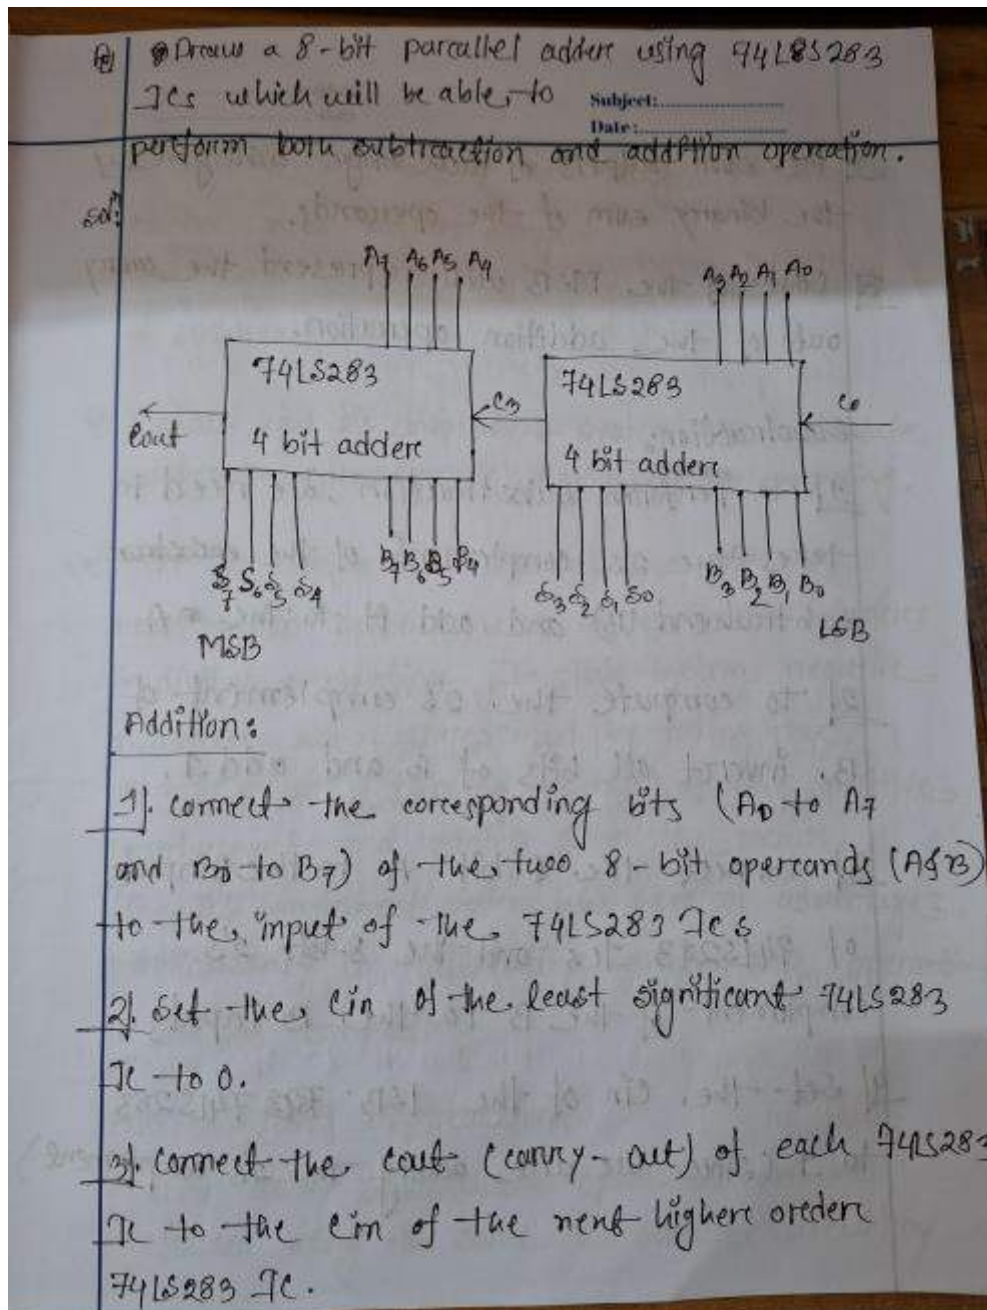 Q Draw a 8-bit parallel adder using 74LS283
ICs which will be able to
Subject:
Date:
perform both subtraction and addition operation.
solⁿ:
A7 A6 A5 A4
A3 A2 A1 A0
74LS283
4 bit adder
74LS283
4 bit adder
Cout
C3
C0
S7 S6 S5 S4
B7 B6 B5 B4
S3 S2 S1 S0
B3 B2 B1 B0
MSB
LSB
Addition:
1). connect the corresponding bits (A0 to A7
and B0 to B7) of the two 8-bit operands (A&B)
to the input of the 74LS283 ICs
2). Set the Cin of the least significant 74LS283
IC to 0.
3). Connect the Cout (carry-out) of each 74LS283
IC to the Cin of the next higher order
74LS283 IC.